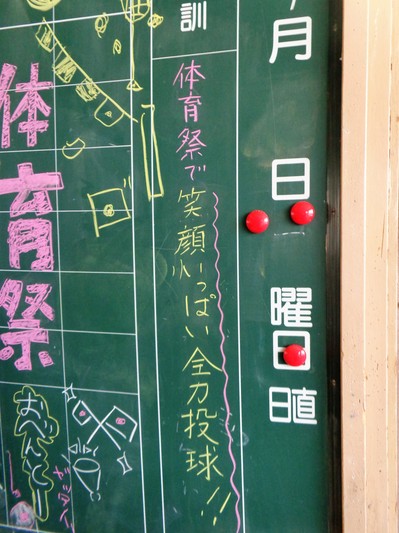 月
日
曜日
日直
訓
体育祭で笑顔いっぱい全力投球!!
体育祭
おべんとー